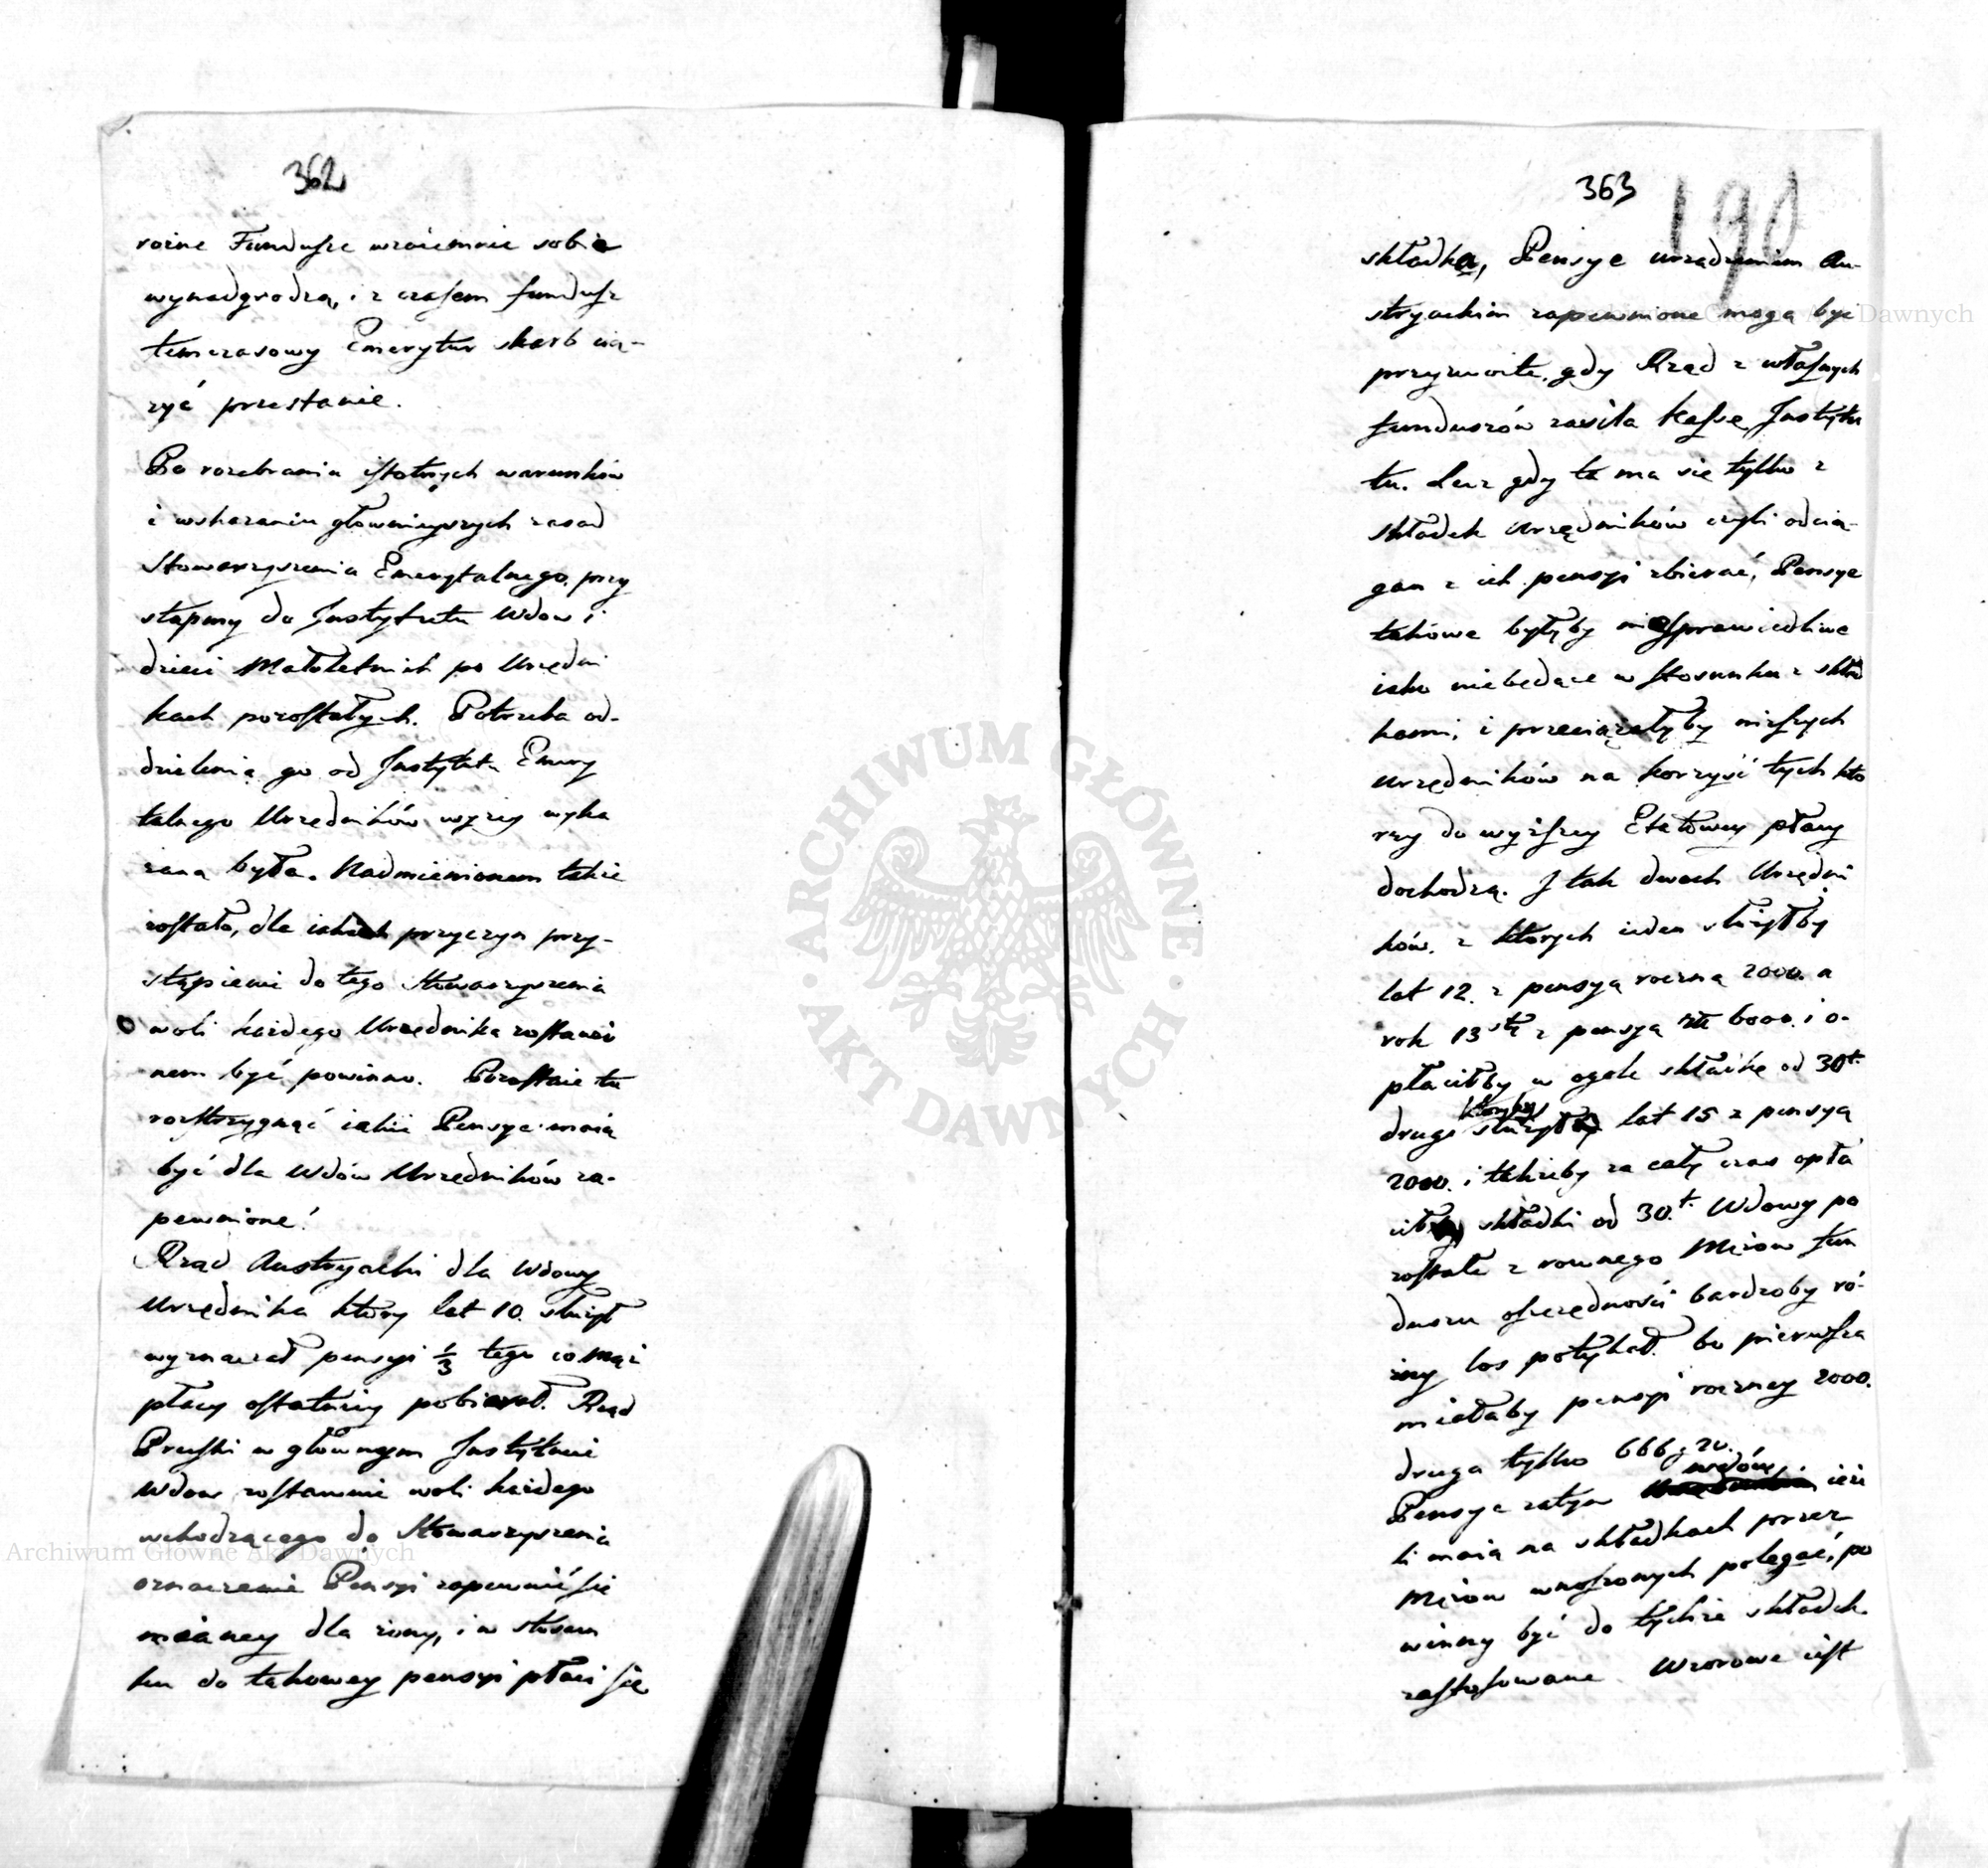 362
rożne Fundusze wzaiemnie sobie
wynadgrodzą, i z czasem fundusz
temczasowy Emerytur skarb cią-
żyć przestanie.
Po rozebraniu istotnych warunków
i wskazaniu głównieyszych zasad
Stowarzyszenia Emerytalnego, przy
stąpmy do Instytutu Wdow i
dzieci Małoletnich po Urzędni
kach pozostałych. Potrzeba od-
dzielenia go od Instytutu Emery
talnego Urzędników wyżey wyka
zana była. Nadmienionem także
zostało, dla iakich przyczyn przy-
stąpienie do tego Stowarzyszenia
woli każdego Urzędnika zostawio
nem być powinno. Pozostaie tu
rozstrzygnąć iakie Pensye maią
być dla Wdów Urzędników za-
pewnione!
Rząd Austryacki dla Wdowy
Urzędnika który lat 10. służył
wyznaczał pensyi 1/3 tego co Mąż
płacy ostatniey pobierał. Rząd
Pruski w głównym Instytucie
Wdow zostawuie woli każdego
wchodzącego do Stowarzyszenia
oznaczenie Pensyi zapewnić się
maiącey dla żony, i w stosun
ku do takowey pensyi płaci się
363
190
składka, Pensye urządzeniem Au-
stryackim zapewnione mogą być
przyzwoite, gdy Rząd z własnych
funduszów zasila kassę Instytu
tu. Lecz gdy ta ma się tylko z
składek Urzędników czyli odcią-
gan z ich pensyi zbierać, Pensye
takowe byłyby niesprawiedliwe
iako niebędące w stosunku z skład
kami, i przeciążałyby niższych
urzędników na korzyść tych któ
rzy do wyższey Etatowey płacy
dochodzą. I tak dwoch Urzędni
ków, z ktorych ieden służyłby
lat 12. z pensyą roczną 2000. a
rok 13sty z pensyą złł 6000. i o-
płaciłby w ogole składkę od 30t.
drugi ktoryby służył lat 15 z pensyą
2000. i takżeby za cały czas opła
cił składki od 30.t. Wdowy po
zostałe z rownego Mężow fun
duszu oszczędności bardzoby ró-
żny los potykał. bo pierwsza
miałaby pensyi roczney 2000.
druga tylko 666 g 20.
Pensye zatym wdów, ieże
li maią na składkach przez
Mężow wnoszonych polegać, po
winny być do tychże składek
zastosowane. Wzorowe iest
Archiwum Główne Akt Dawnych
Archiwum Główne Akt Dawnych
ARCHIWUM GŁÓWNE · AKT DAWNYCH ·